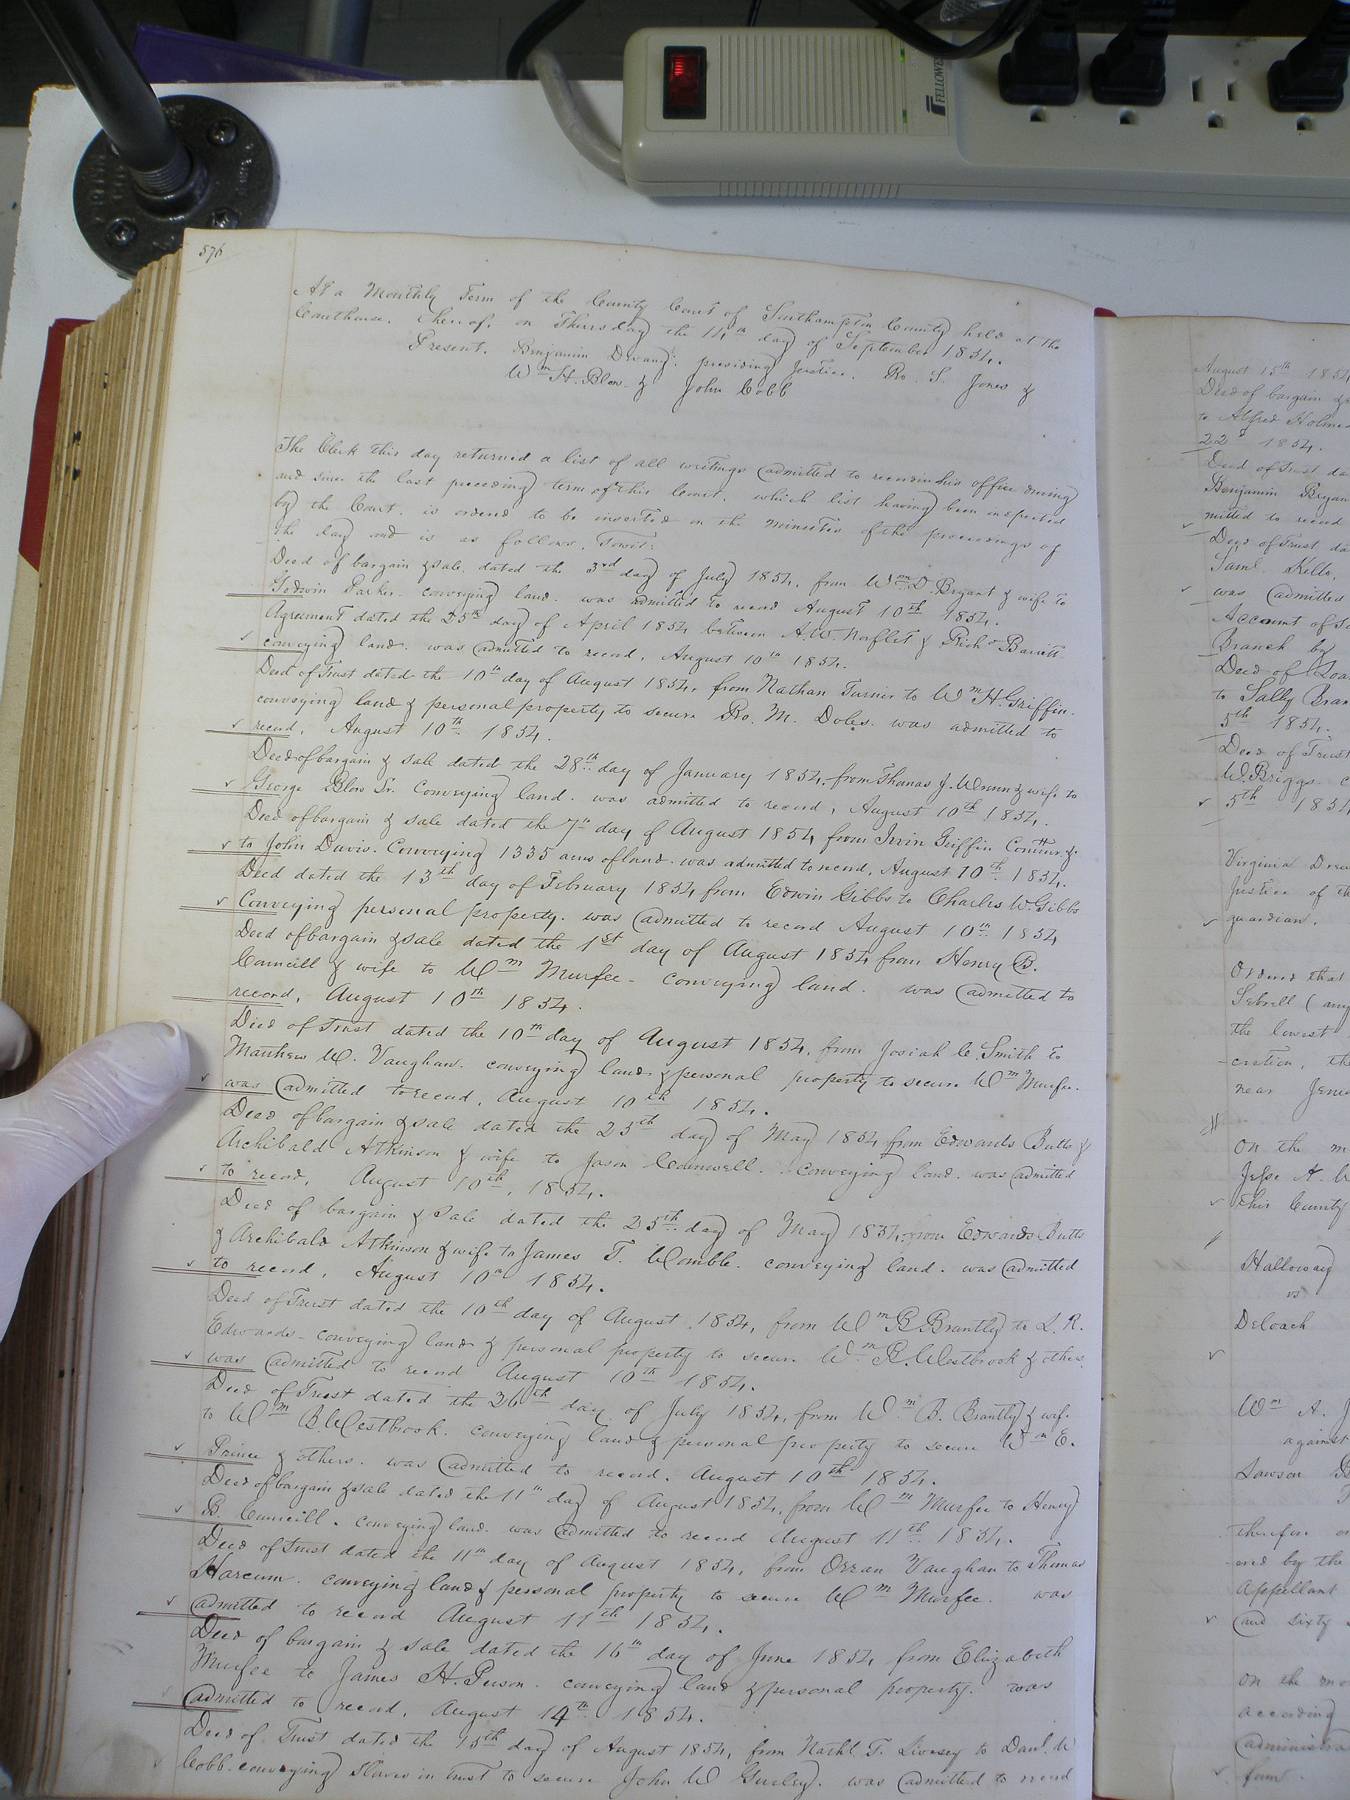 FELLOWES
576
At a Monthly Term of the County Court of Southampton County held at the
Courthouse. thereof. on Thursday the 14th day of September 1854.
Present. Benjamin Devany: presiding Justice. Ro. S. Jones &
Wm H. Blow. & John Cobb
The Clerk this day returned a list of all writings admitted to record in his office during
and since the last preceding term of this Court. which list having been inspected
by the Court. is ordered to be inserted in the minutes of the proceedings of
the day and is as follows, Towit:
Deed of bargain & sale. dated the 3rd day of July 1854. from Wm D. Bryant & wife to
Godwin Parker. conveying land. was admitted to record August 10th 1854.
Agreement dated the 25th day of April 1854 between A.W. Norflet & Richd Barrett
conveying land. was admitted to record, August 10th 1854.
Deed of Trust dated the 10th day of August 1854. from Nathan Turner to Wm H. Griffin.
conveying land & personal property to secure Ro. M. Doles. was admitted to
record, August 10th 1854.
Deed of bargain & sale dated the 28th day of January 1854. from Thomas J. & wife to
George Blow Sr. Conveying land. was admitted to record, August 10th 1854.
Deed of bargain & sale dated the 7th day of August 1854 from Irvin Griffin Comttee &c
to John Davis. Conveying 1335 acres of land. was admitted to record, August 10th 1854.
Deed dated the 13th day of February 1854 from Edwin Gibbs to Charles W. Gibbs
Conveying personal property. was admitted to record August 10th 1854
Deed of bargain & sale dated the 1st day of August 1854 from Henry B.
Councill & wife to Wm Murfee - conveying land. was admitted to
record, August 10th 1854.
Deed of Trust dated the 10th day of August 1854. from Josiah C. Smith to
Matthew W. Vaughan. conveying land & personal property to secure Wm Murfee.
was admitted to record, August 10th 1854.
Deed of bargain & sale dated the 25th day of May 1854 from Edwards Butts &
Archibald Atkinson & wife to Jason. conveying land. was admitted
to record, August 10th, 1854.
Deed of bargain & sale dated the 25th day of May 1854. from Edwards Butts
& Archibald Atkinson & wife to James T. Womble. conveying land. was admitted
to record, August 10th 1854.
Deed of Trust dated the 10th day of August 1854, from Wm B. Brantly to L. R.
Edwards - conveying land & personal property to secure Wm R. Westbrook & others.
was admitted to record August 10th 1854.
Deed of Trust dated the 26th day of July 1854, from Wm B. Brantly & wife
to Wm B. Westbrook. conveying land & personal property to secure Wm E.
Prince & others. was admitted to record. August 10th 1854.
Deed of bargain & sale dated the 11th day of August 1854, from Wm Murfee to Henry
B. Councill. conveying land. was admitted to record August 11th 1854.
Deed of Trust dated the 11th day of August 1854, from Orran Vaughan to Thomas
Harcum. conveying land & personal property to secure Wm Murfee. was
admitted to record August 11th 1854.
Deed of bargain & sale dated the 16th day of June 1854 from Elizabeth
Murfee to James H. Person. conveying land & personal property. was
admitted to record, August 14th 1854.
Deed of Trust dated the 15th day of August 1854, from Nathl. T. Livesey to Danl. W
Cobb. conveying slaves in trust to secure John W Gurley. was admitted to record
August 15th 1854
Deed of bargain &
to Alfred Holmes
22d 1854.
Deed of Trust da
Benjamin Bryan
mitted to record
Deed of Trust da
Saml. Kello,
was admitted
Account of
Branch by
Deed of
to Sally Bran
5th 1854.
Deed of Trust
W. Briggs. c
5th 1854
Virginia
Justice of th
guardian.
Ordered that
Sebrell (any
the lowest
cretion, the
near
On the m
Jesse A.
this County
Holloway
vs
DeLoach
Wm A. J
against
Lawson
therefore
ered by the
Appellant
and sixty
On the mo
according
administra
form.